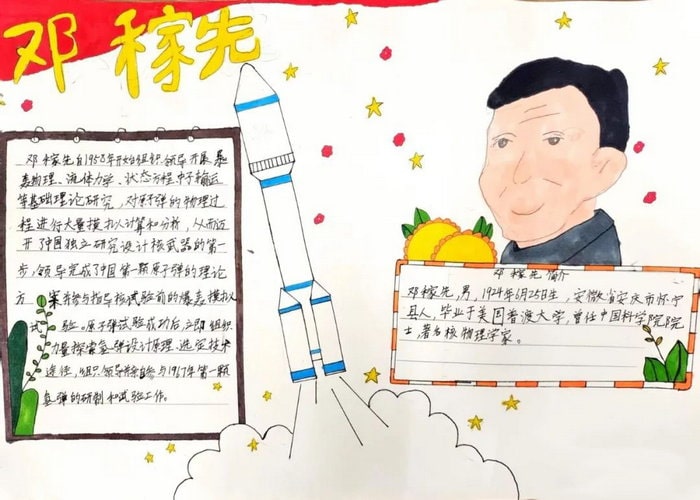 邓稼先
邓稼先自1958年开始组织领导开展爆
轰物理、流体力学、状态方程、中子输运
等基础理论研究，对原子弹的物理过
程进行大量模拟计算和分析，从而迈
开了中国独立研究设计核武器的第一
步，领导完成了中国第一颗原子弹的理论
方 案并参与指导核试验前的爆轰模拟
试 验。原子弹试验成功后，立即组织
力量探索氢弹设计原理、选定技术
途径，组织领导并亲自参与1967年第一颗
氢弹的研制和试验工作。
邓稼先简介
邓稼先，男，1924年6月25日生，安徽省安庆市怀宁
县人，毕业于美国普渡大学，曾任中国科学院院
士，著名核物理学家。